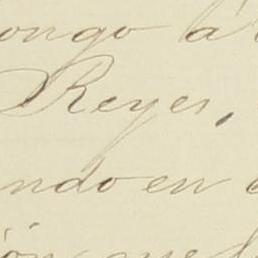 ongo a
Reyes,
ndo en
ón que